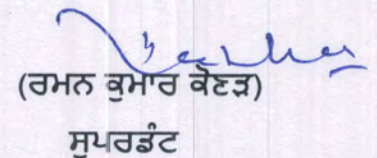 (ਰਮਨ ਕੁਮਾਰ ਕੋਣੜ)
ਸੁਪਰਡੰਟ